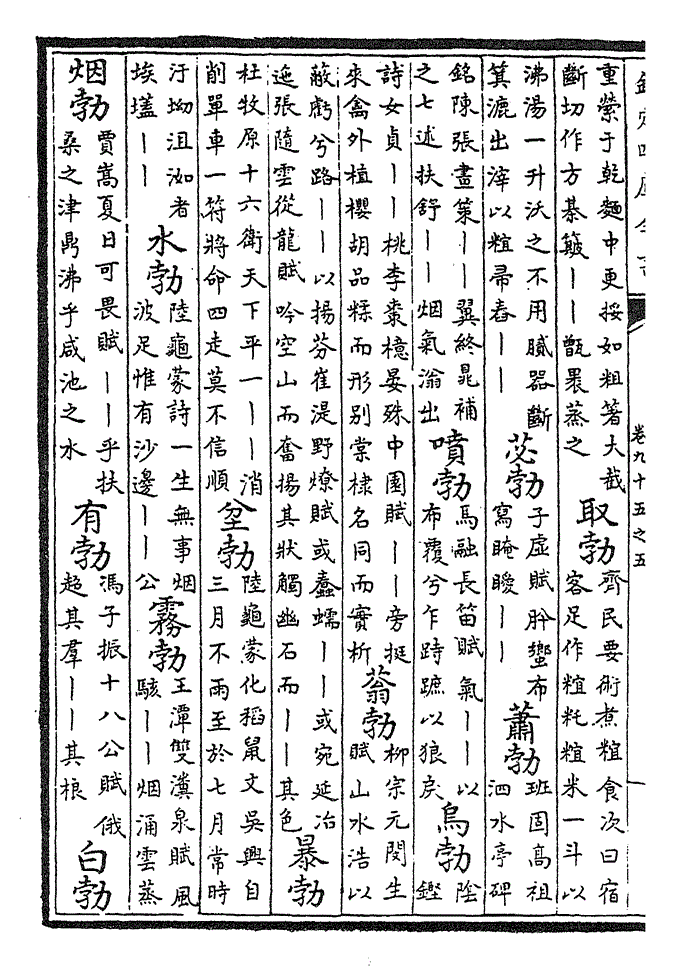 欽定四庫全書
卷九十五之五
重縈于乾麵中更挼如粗箸大截
斷切作方棊簸丨丨甑裏蒸之
取勃
齊民要術煮食次曰宿
客足作籹米一斗以
沸湯一升沃之不用膩器斷
箕漉出滓以帚舂丨丨
苾勃
子虛賦肸蠁布
寫晻曖丨丨
蕭勃
班固高祖
泗水亭碑
銘陳張畫策丨丨翼終晁補
之七述扶舒丨丨烟氣滃出
噴勃
馬融長笛賦氣丨丨以
布覆兮乍跱蹠以狼戾
烏勃
陰
鏗
詩女貞丨丨桃李棗檍晏殊中園賦丨丨旁挺
來禽外植櫻胡品糅而形别棠棣名同而實析
蓊勃
柳宗元閔生
賦山水浩以
蔽虧兮路丨丨以揚芬崔湜野燎賦或蠢蠕丨丨或宛延冶
迤張隨雲從龍賦吟空山而奮揚其狀觸幽石而丨丨其色
暴勃
杜牧原十六衛天下平一丨丨消
削單車一符將命四走莫不信順
坌勃
陸龜蒙化稻鼠文吳興自
三月不雨至於七月常時
汙坳沮洳者
埃壒丨丨
水勃
陸龜蒙詩一生無事烟
波足惟有沙邊丨丨公
霧勃
王潭雙瀵泉賦風
駭丨丨烟涌雲蒸
烟勃
賈嵩夏日可畏賦丨丨乎扶
桑之津鼎沸乎咸池之水
有勃
馮子振十八公賦俄
超其羣丨丨其根
白勃